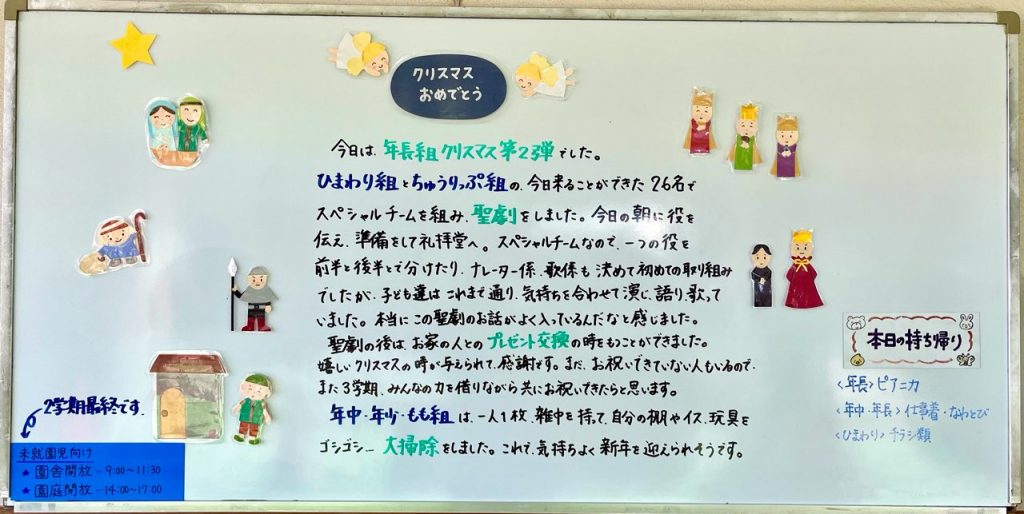 クリスマス
おめでとう
今日は、年長組クリスマス第2弾でした。
ひまわり組とちゅうりっぷ組の、今日来ることができた26名で
スペシャルチームを組み、聖劇をしました。今日の朝に役を
伝え、準備をして礼拝堂へ。スペシャルチームなので、一つの役を
前半と後半とで分けたり、ナレーター係、歌係も決めて初めての取り組み
でしたが、子ども達はこれまで通り、気持ちを合わせて演じ、語り、歌って
いました。本当にこの聖劇のお話がよく入っているんだなと感じました。
聖劇の後は、お家の人とのプレゼント交換の時をもつことができました。
嬉しいクリスマスの時が与えられて、感謝です。まだ、お祝いできていない人もいるので、
また3学期、みんなの力を借りながら共にお祝いできたらと思います。
年中・年少・もも組は、一人1枚、雑巾を持って、自分の棚やイス、玩具を
ゴシゴシ… 大掃除をしました。これで、気持ちよく新年を迎えられそうです。
本日の持ち帰り
〈年長〉ピアニカ
〈年中・年長〉仕事着・なわとび
〈ひまわり〉チラシ類
2学期最終です。
未就園児向け
★ 園舎開放 - 9:00〜11:30
★ 園庭開放 - 14:00〜17:00